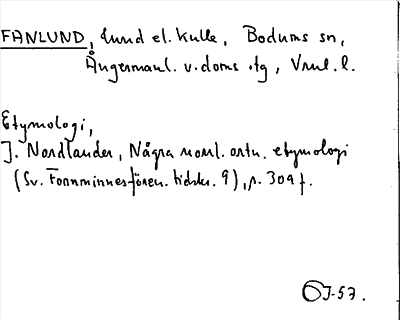 FANLUND, lund el. kulle, Bodums sn,
Ångermanl. v. doms. tg, Vnrl. l.
Etymologi,
J. Nordlander, Några norrl. ortn. etymologi
(Sv. Fornminnesfören. tidskr. 9), s. 309 f.
J-57.